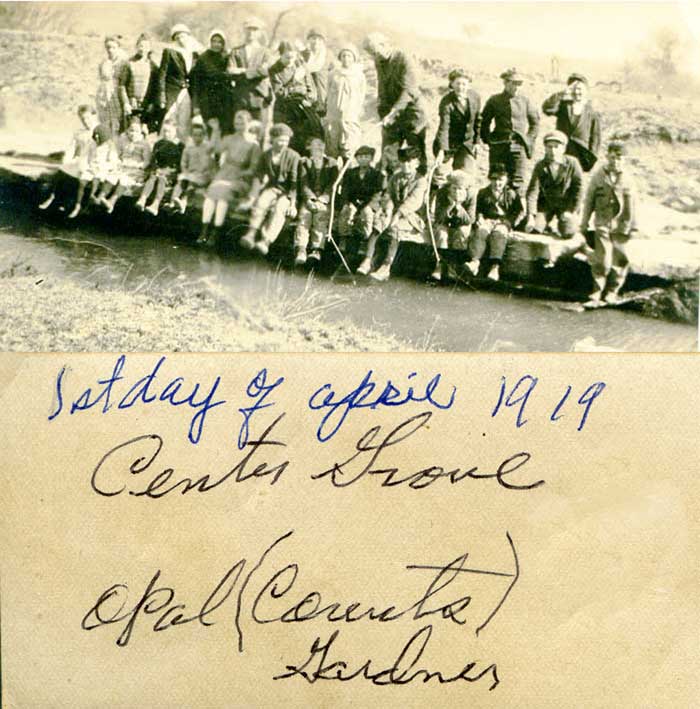 1st day of april 1919
Center Grove
Opal (Counts)
Gardner